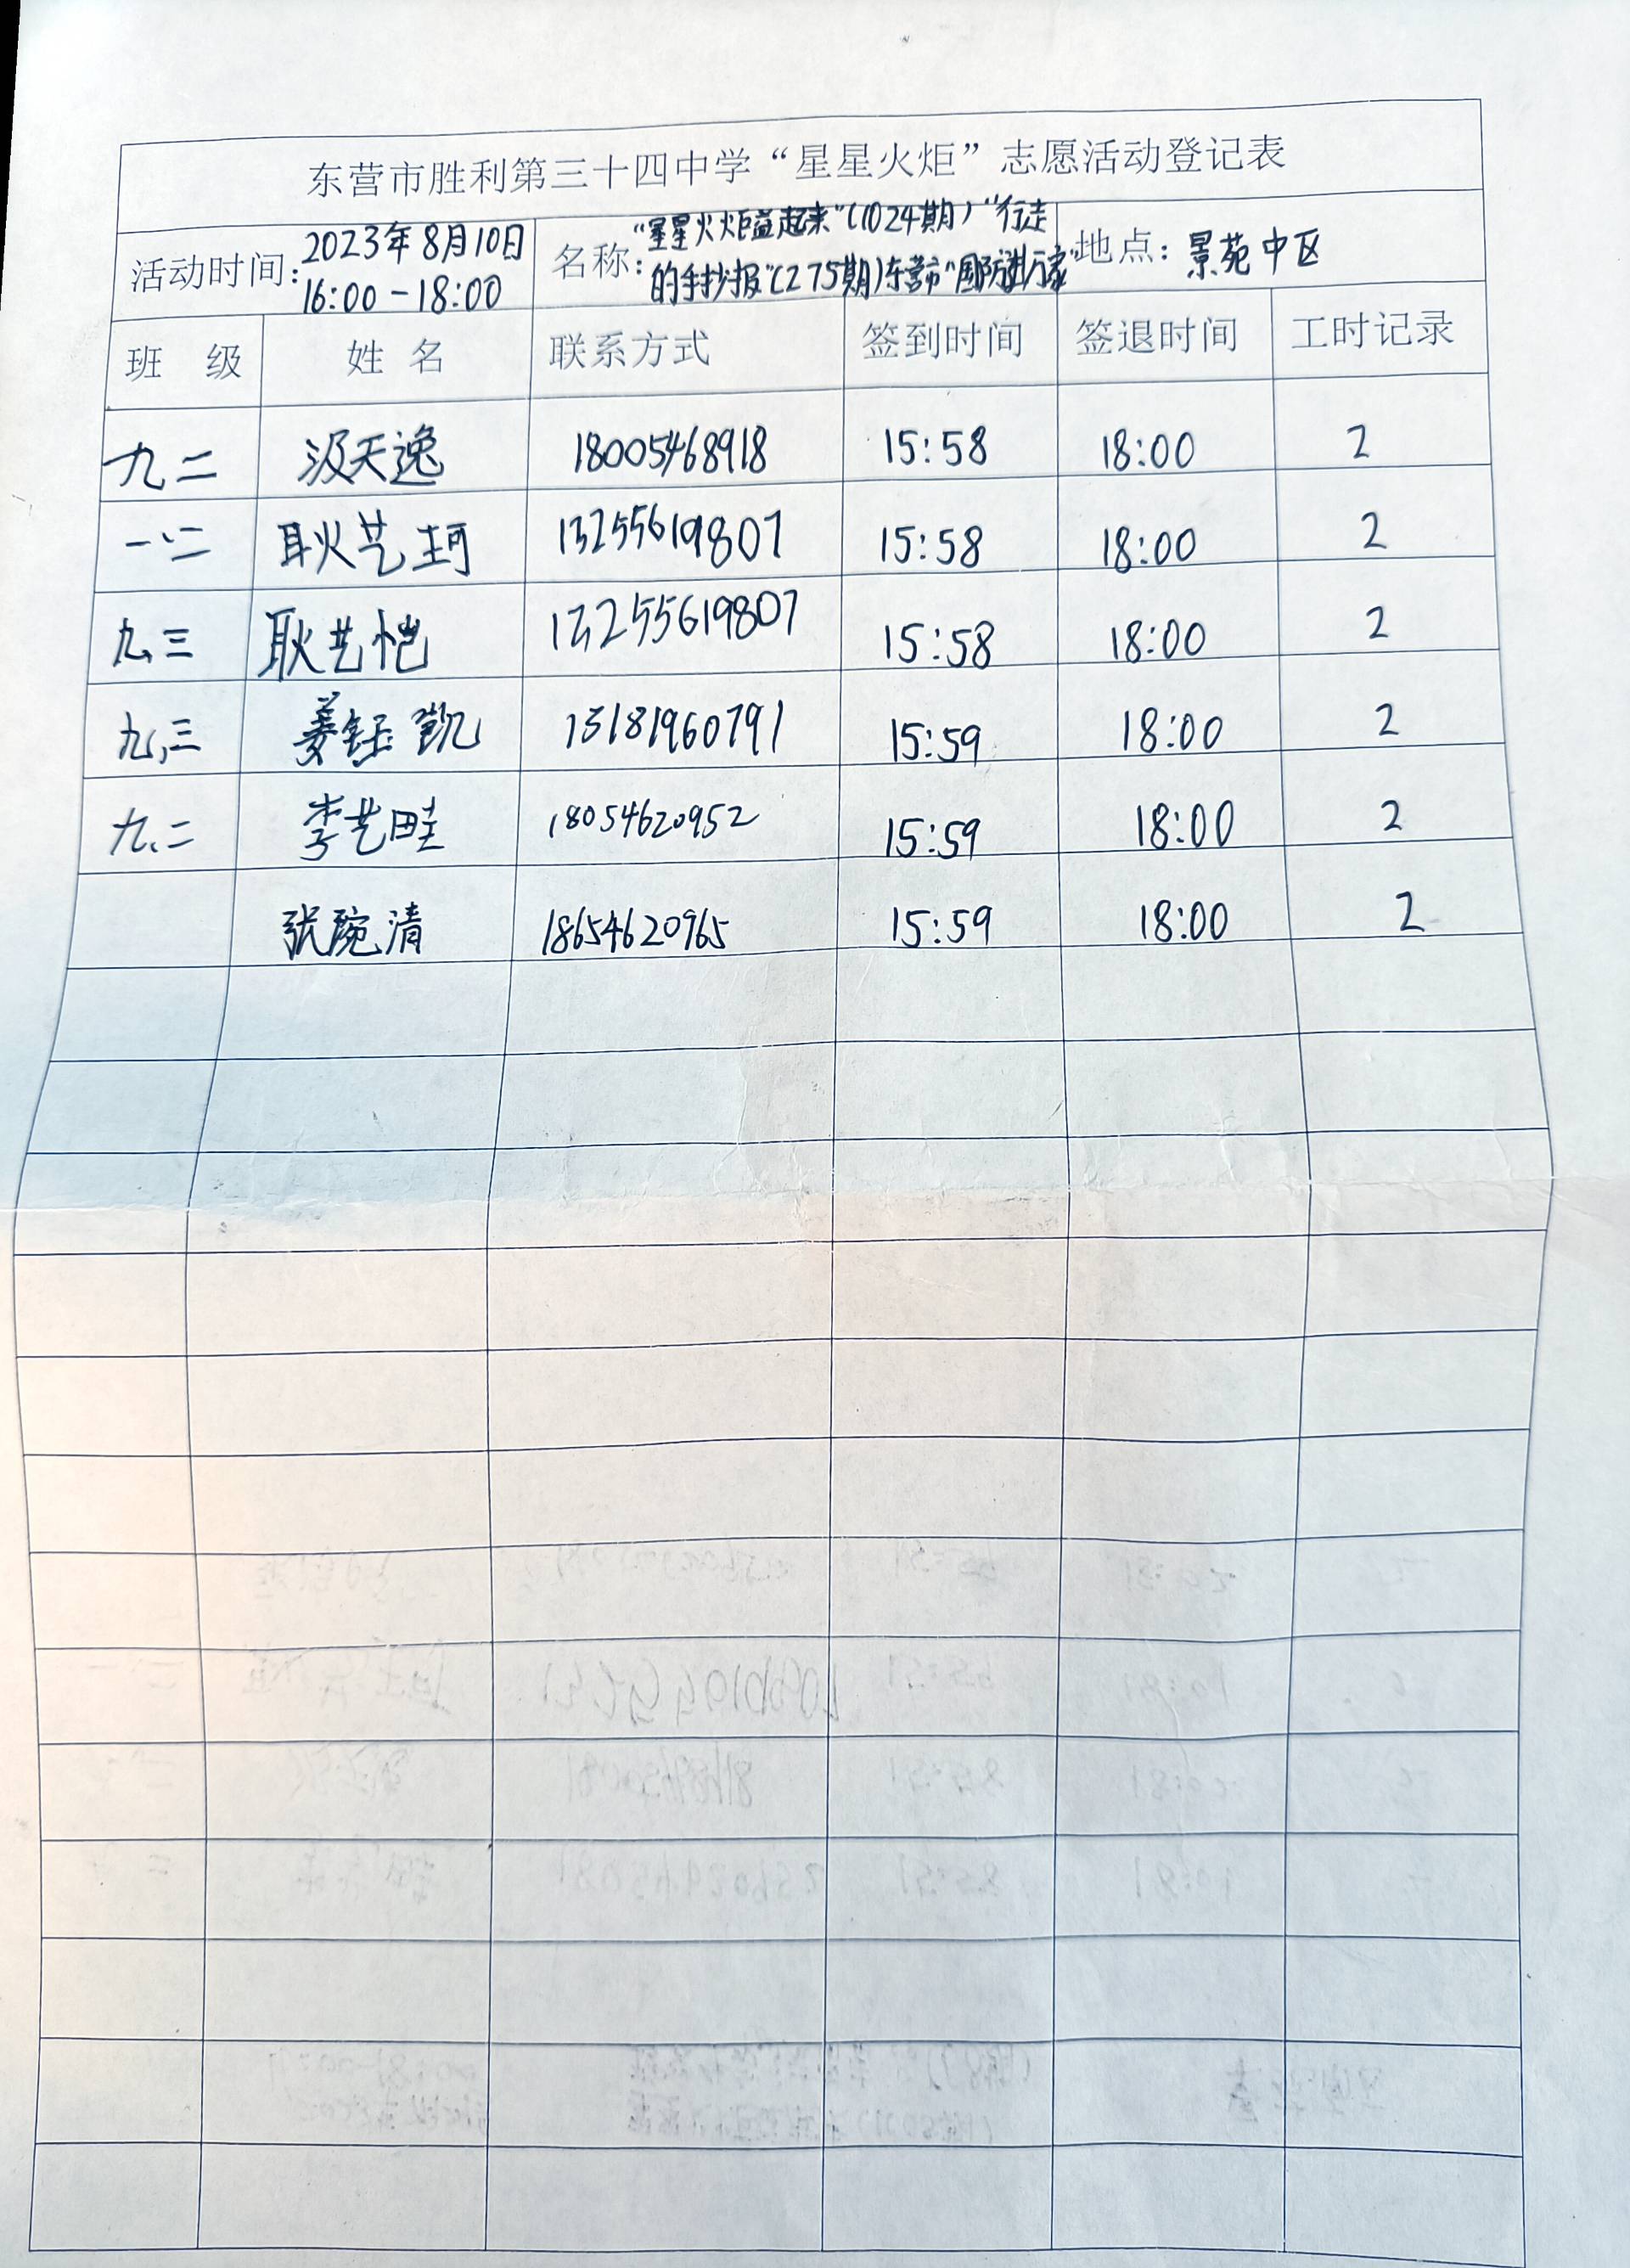 东营市胜利第三十四中学“星星火炬”志愿活动登记表
活动时间: 2023年8月10日 16:00-18:00 名称: “星星火火炬益起来”(1024期)“行走的手抄报”(275期)东营市“国防进万家” 地点: 景苑中区
班 级 姓 名 联系方式 签到时间 签退时间 工时记录
九二 汲天逸 18005468918 15:58 18:00 2
一、二 耿艺珂 13255619807 15:58 18:00 2
九、三 耿艺恺 13255619807 15:58 18:00 2
九,三 姜钰凯 15181960791 15:59 18:00 2
九、二 李艺畦 18054620952 15:59 18:00 2
张琬清 18654620965 15:59 18:00 2